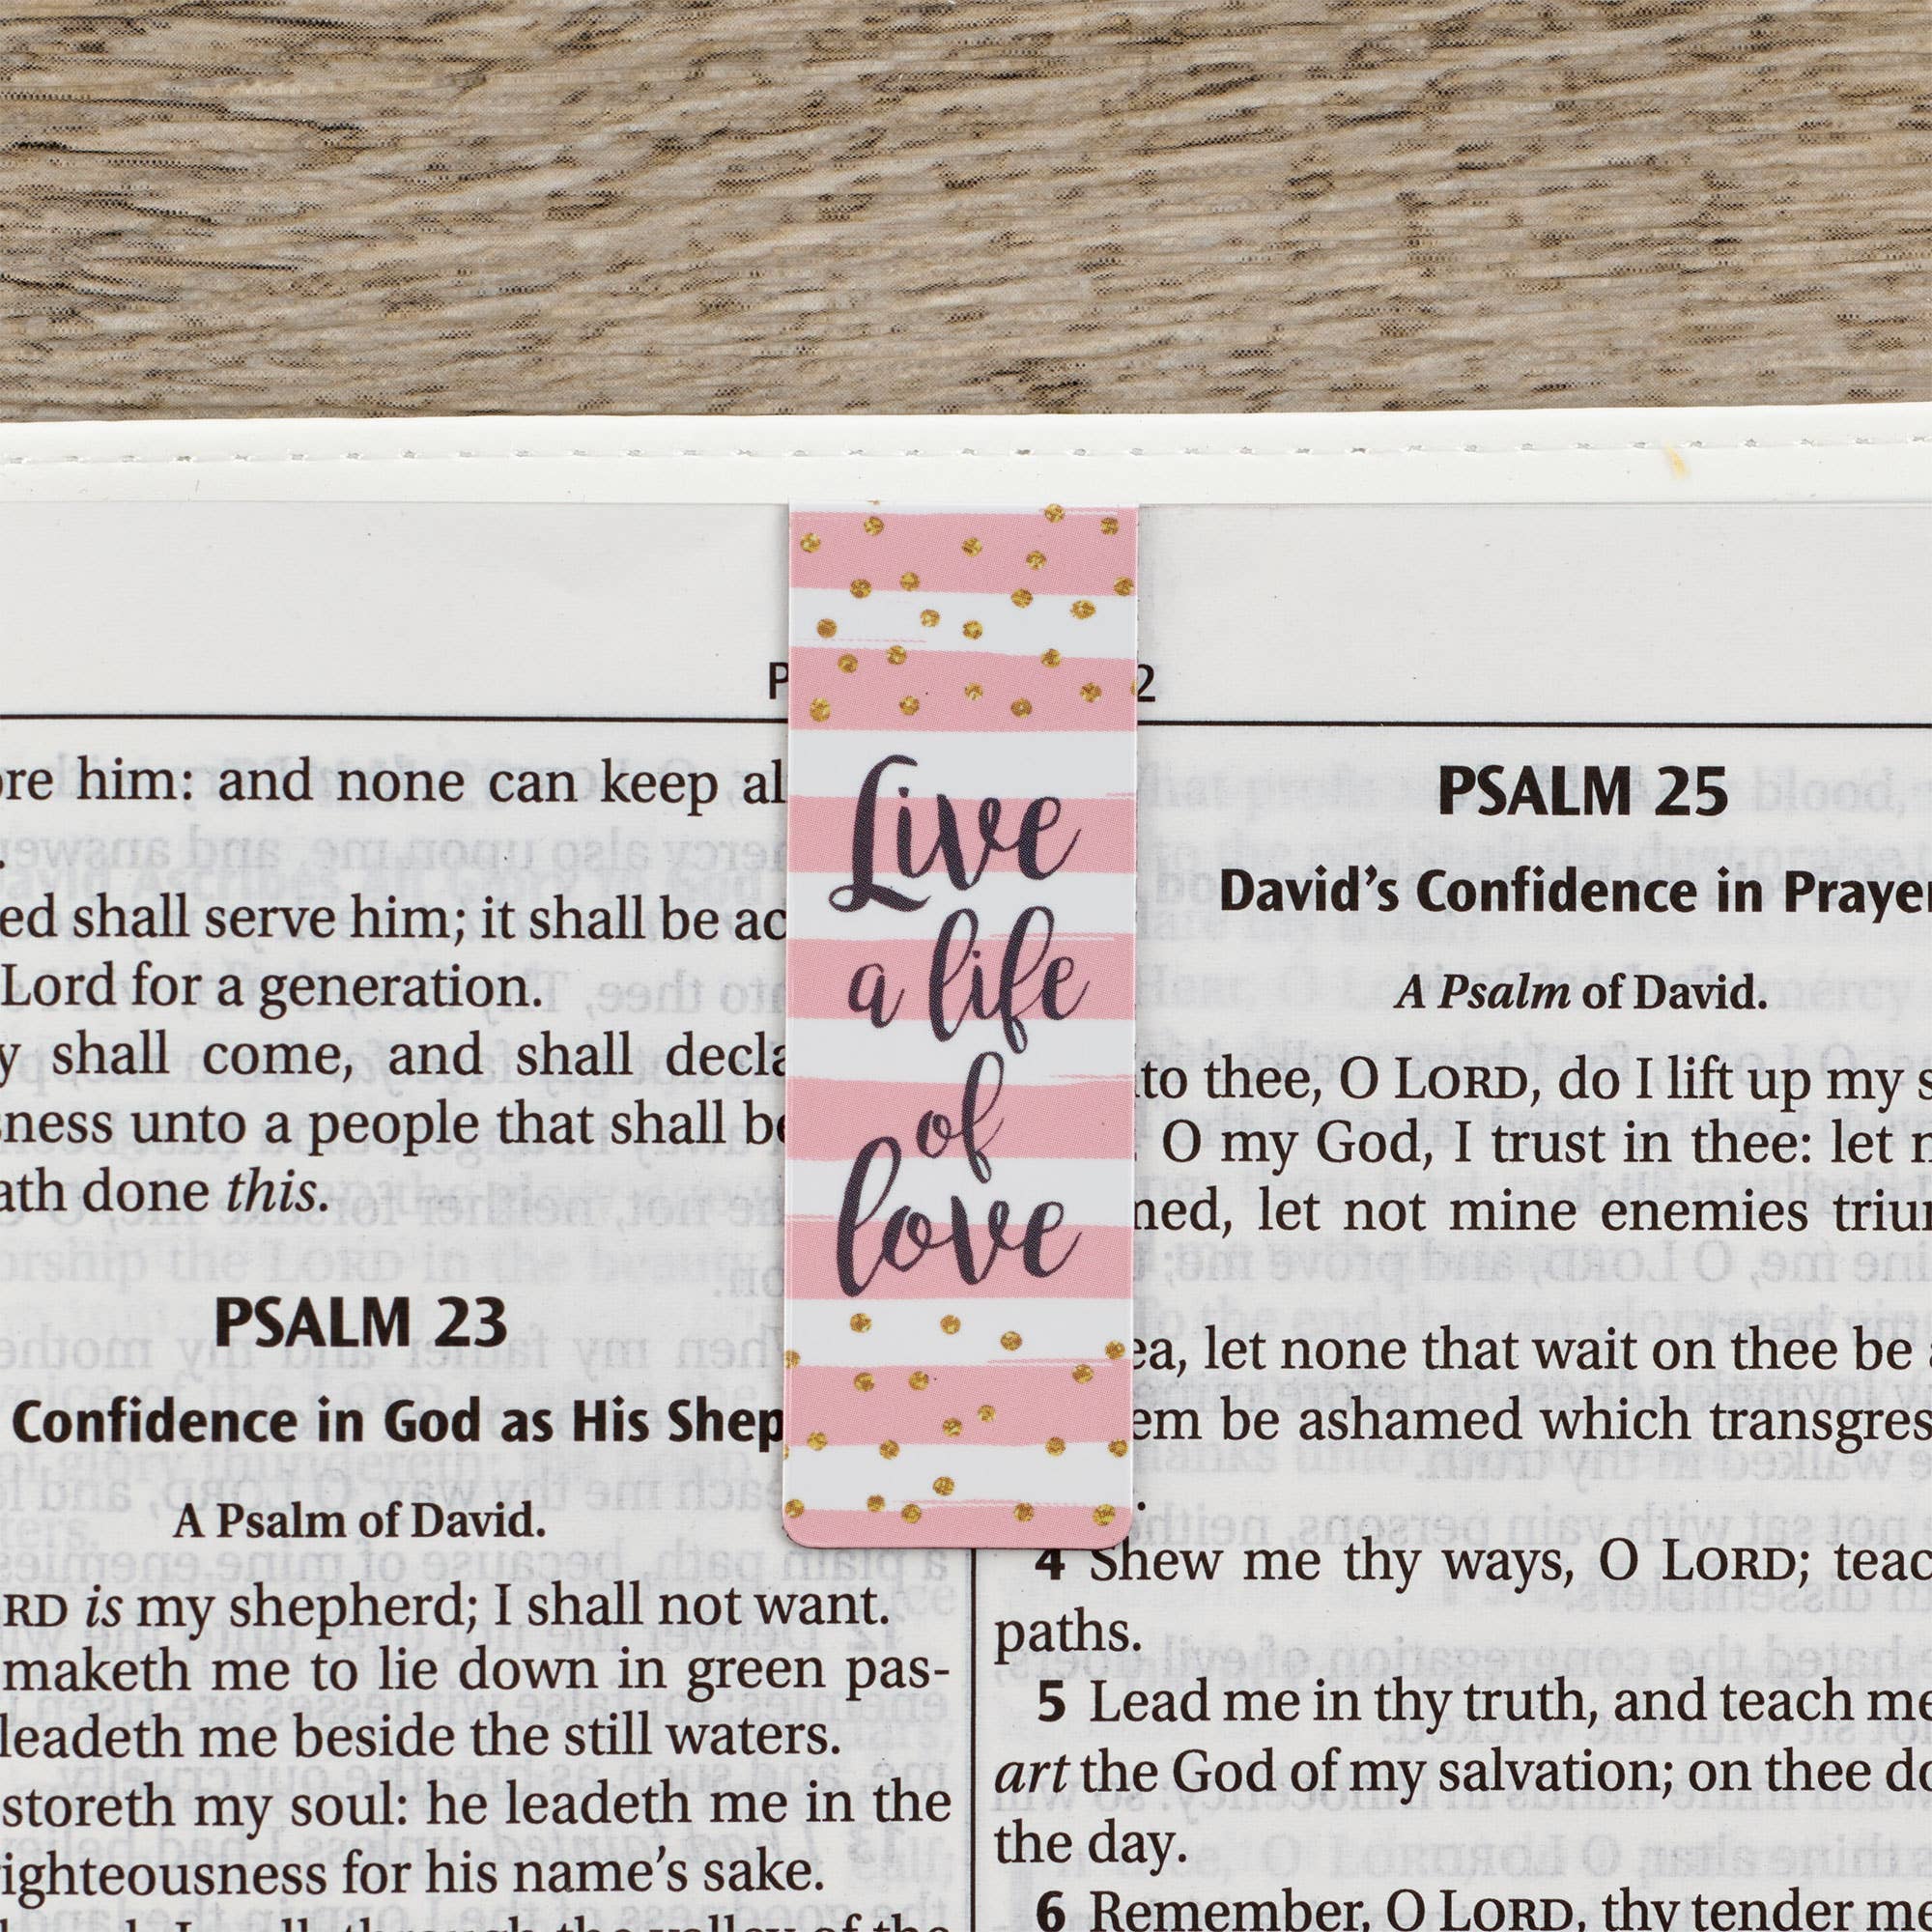 2
him: and none can keep
shall serve him; it shall be
Lord for a generation.
shall come, and shall
unto a people that shall
done this.
PSALM 23
Confidence in God as His
A Psalm of David.
is my shepherd; I shall not want.
maketh me to lie down in green pas-
leadeth me beside the still waters.
my soul: he leadeth me in the
for his name's sake.
Live
a life
of
love
PSALM 25
David's Confidence in
A Psalm of David.
to thee, O LORD, do I lift up my
O my God, I trust in thee: let
let not mine enemies
let none that wait on thee be
be ashamed which
4 Shew me thy ways, O LORD;
paths.
5 Lead me in thy truth, and teach
art the God of my salvation; on thee
the day.
6 Remember, O LORD, thy tender